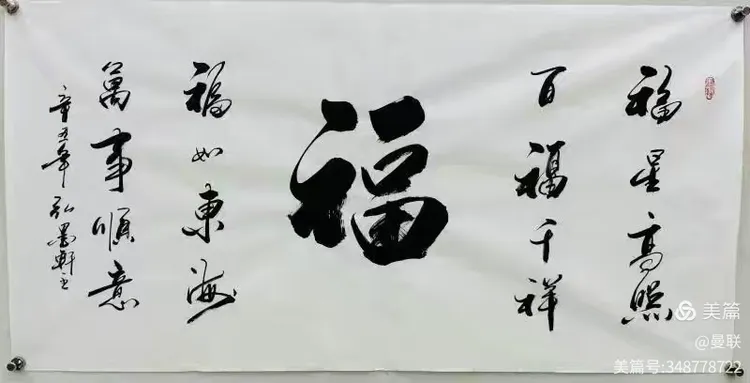 福星高照
百福千祥
福
福如東海
萬事順意
辛丑年 弘墨軒主
美篇
@曼联
美篇号:348778722